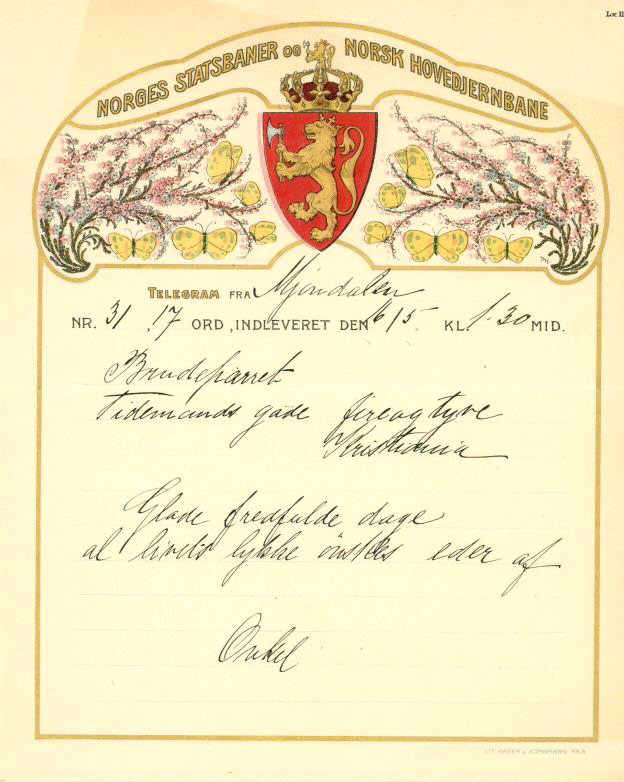 NORGES STATSBANER OG NORSK HOVEDJERNBANE
TELEGRAM FRA Mjøndalen
NR. 31 17 ORD, INDLEVERET DEN 6/5 KL. 1.30 MID.
Brudeparret
Tidemands gade fireogtyve
Kristiania
Glade fredfulde dage
al livets lykke önskes eder af
Onkel
LIT. HAGEN & KORNMANN KR.A